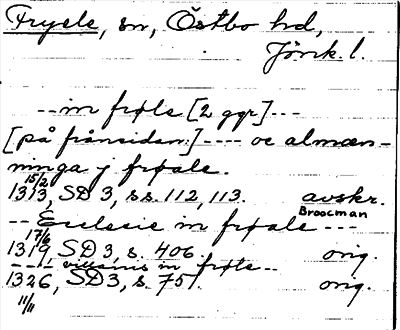 Fryele, sn, Östbo hd,
Jönk. l.
-- in frøle [2 ggr] ---
[på frånsidan:] ---- oc almæn-
ninga j frøale.
15/2
1313, SD 3, s.s. 112, 113. avskr.
Broocman
-- Ecclesie in frøale ---
17/6
1319, SD 3, s. 406 orig.
---- villanis in frøle --
1326, SD 3, s. 751. orig.
11/11